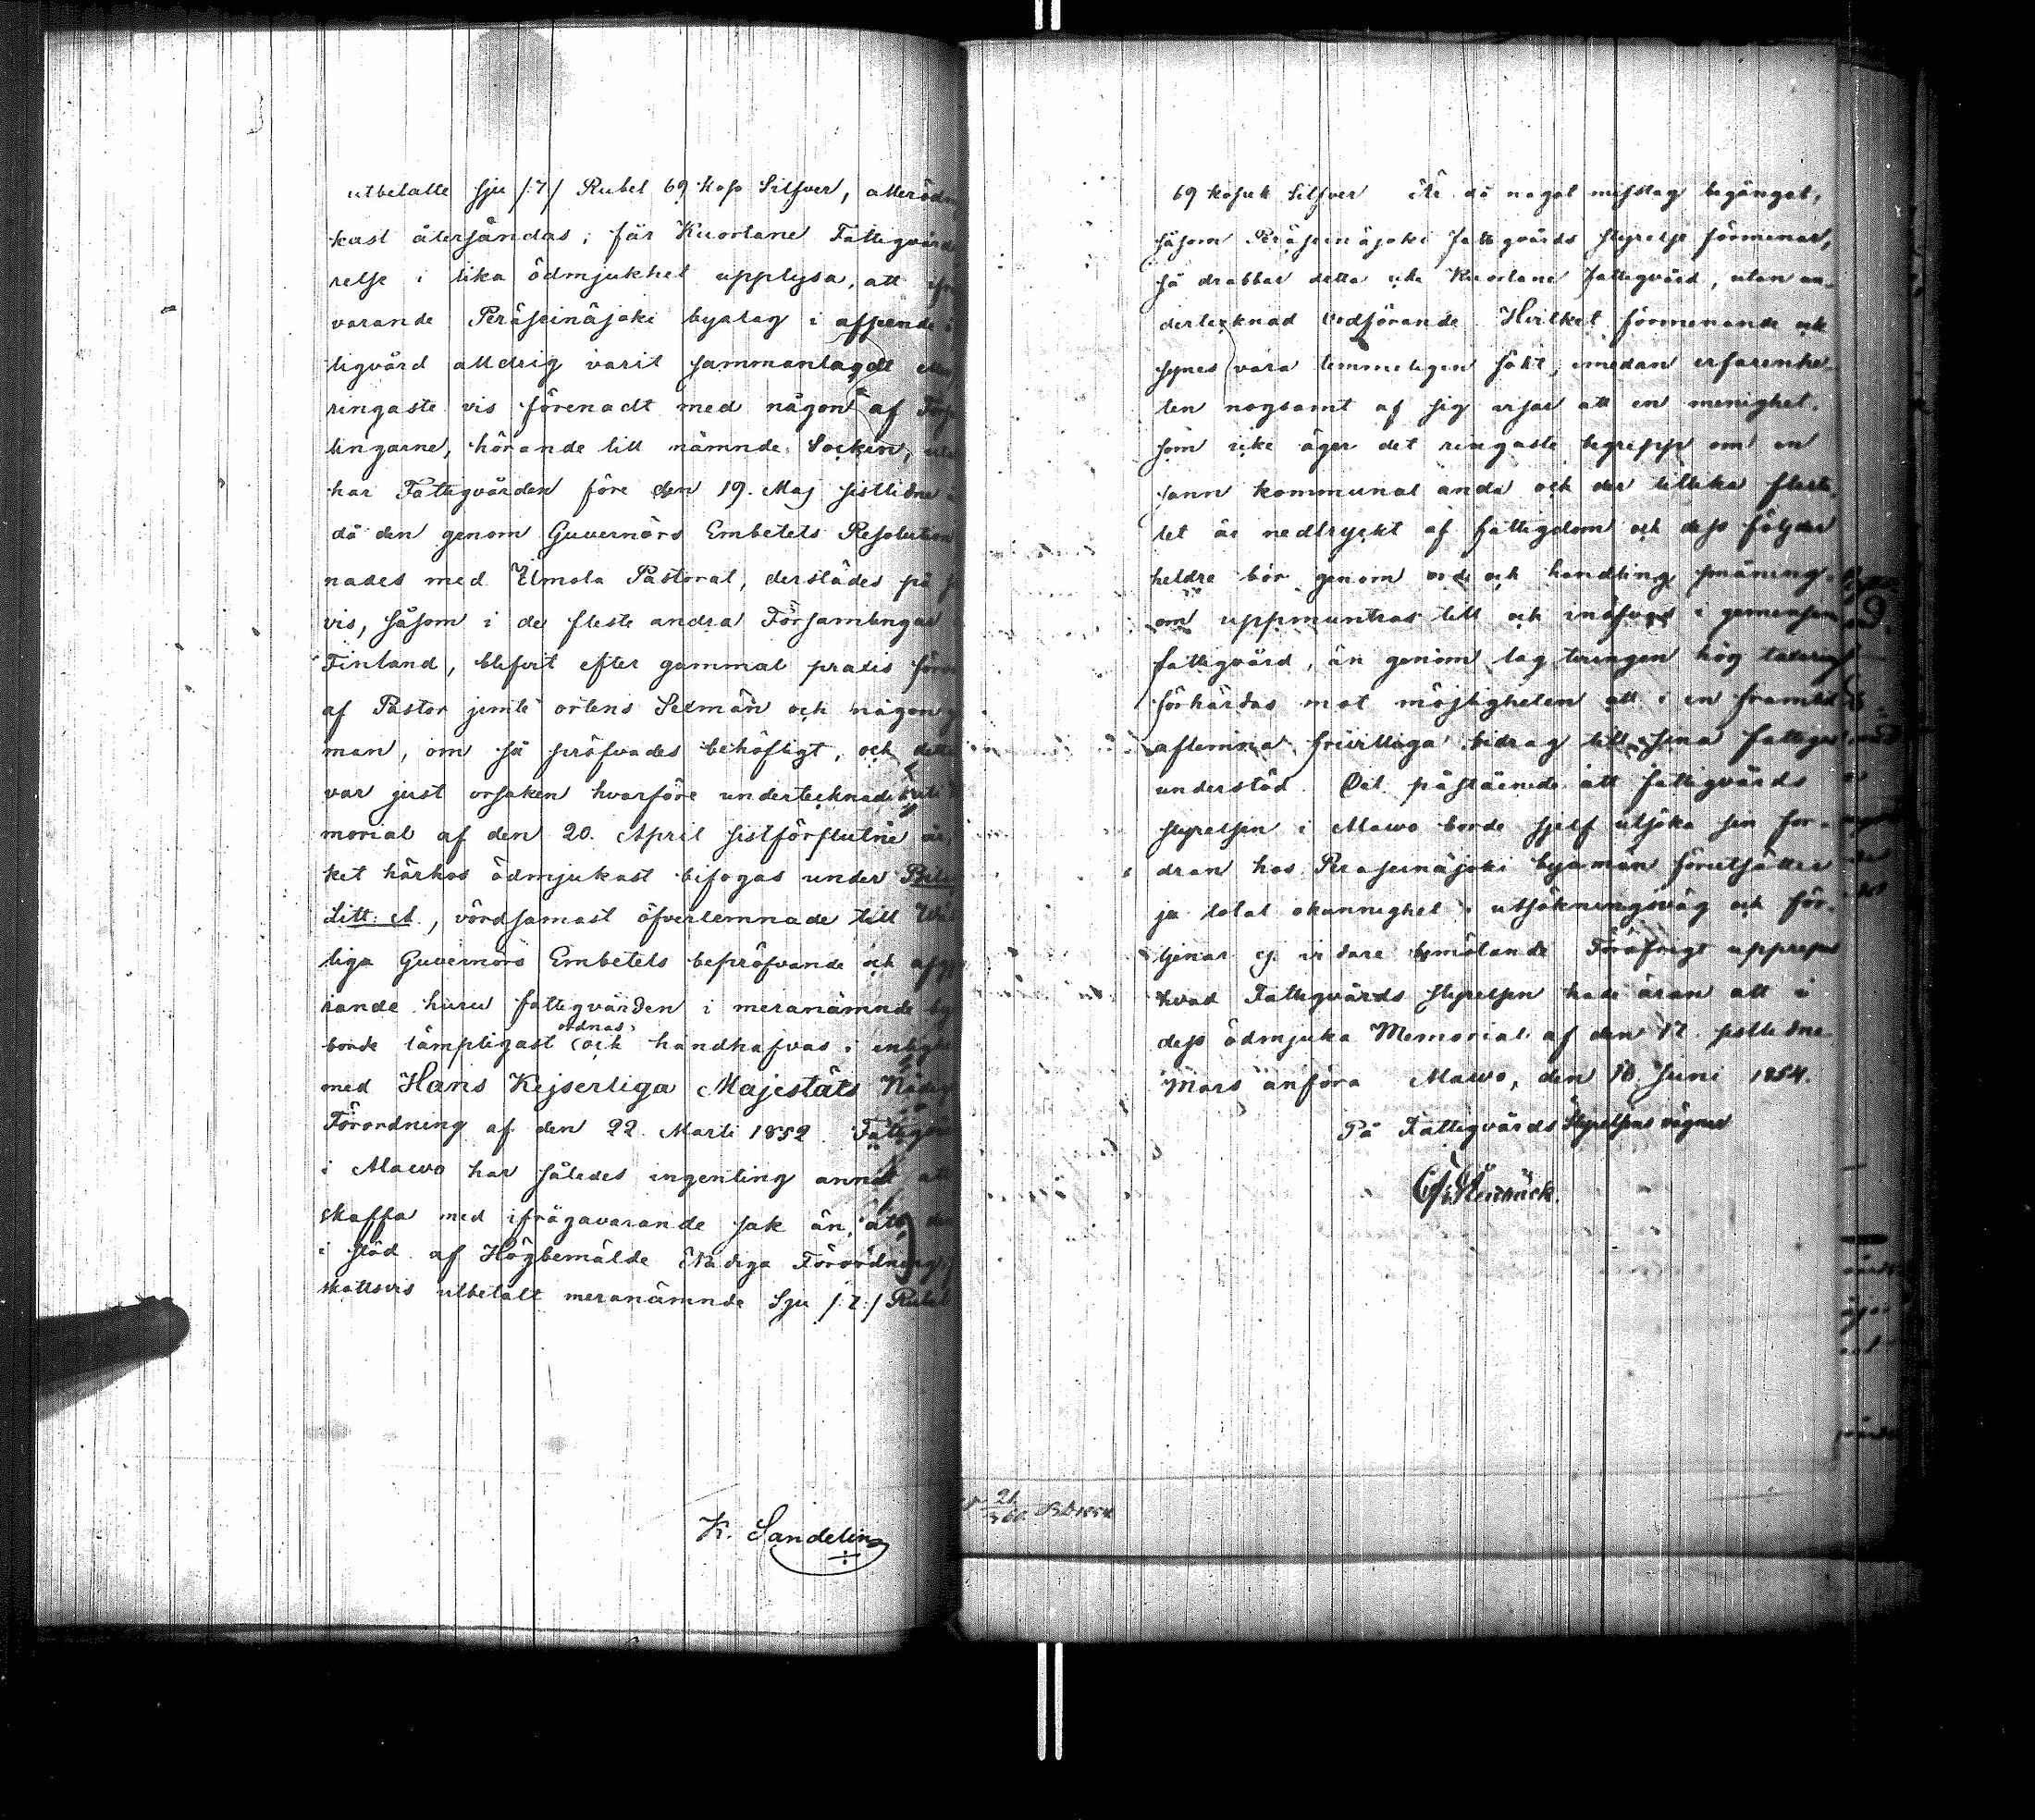 utbetalte sju /:7:/ Rubel 69 kop Silfver, allerödm
kast återsändas; får Kuortane Fattigvårds
relse i lika ödmjukhet upplysa, att ifrå
varande Peräseinäjoki byalag i afseende å
tigvård alldrig varit sammanlagdt eller
ringaste vis förenadt med någon af Förs
lingarne, hörande till nämnde Socken, utan
har Fattigvården före den 19. Maj sistlidne
då den genom Guvernörs Embetets Resolution
nades med Ilmola Pastorat, derstädes på
vis, såsom i de fleste andra Församlingar
Finland, blifvit efter gammal praxis förva
af Pastor jemte ortens Sexmän och någon
man, om så pröfvades behöfligt, och detta
var just orsaken hvarföre undertecknade
morial af den 20. April sistförflutne år,
ket härhos ödmjukast bifogas under Bila
Litt. A., vördsamast öfverlemnade till Wäl
liga Guvernörs Embetets bepröfvande och afgö
rande huru fattigvården i meranämnde by
ordnas
borde lämpligast och handhafvas i enlighe
med Hans Kejserliga Majestäts Nådig
Förordning af den 22. Martii 1852. Fattigvå
i Alavo har således ingenting annat att
skaffa med ifrågavarande sak än att den
i stöd af Högbemälde Nådiga Förordning
skottsvis utbetalt meranämnde Sju /:7:/ Rubel
K. Sandelin
69 kopek Silfver Är då något misstag begånget,
såsom Peräseinäjoki Fattigvårds styrelse förmenar,
så drabbar detta icke Kuortane Fattigvård, utan un-
dertecknad Ordförande. Hvilket förmenande ock
synes vara temmeligen sökt, emedan erfarenhe-
ten nogsamt af sig visar att en menighet,
som icke äger det ringaste begrepp om en
sann kommunal anda och der tillika flerta-
let är nedtryckt af fattigdom och dess följder
heldre bör genom ord och handling småning-
om uppmuntras till och inöfvas i gemensam
fattigvård, än genom lag tvingen hög taxering
förhärdas mot möjligheten att i en framtid
aflemna frivilliga bidrag till sina fattigas
understöd. Det påståendet att Fattigvårds
styrelsen i Alavo borde sjelf utsöka sin for-
dran hos Peräseinäjoki byamän förutsätter
ju total okunnighet i utsökningsväg och för-
tjenar ej vidare bemötande. Töröfrigt upprepas
hvad Fattigvårds styrelsen hade äran att i
dess ödmjuka Memorial af den 17. sistlidne
Mars anföra. Alavo, den 10. Juni 1854.
På Fattigvårds Styrelsens vägnar
Stenbäck.